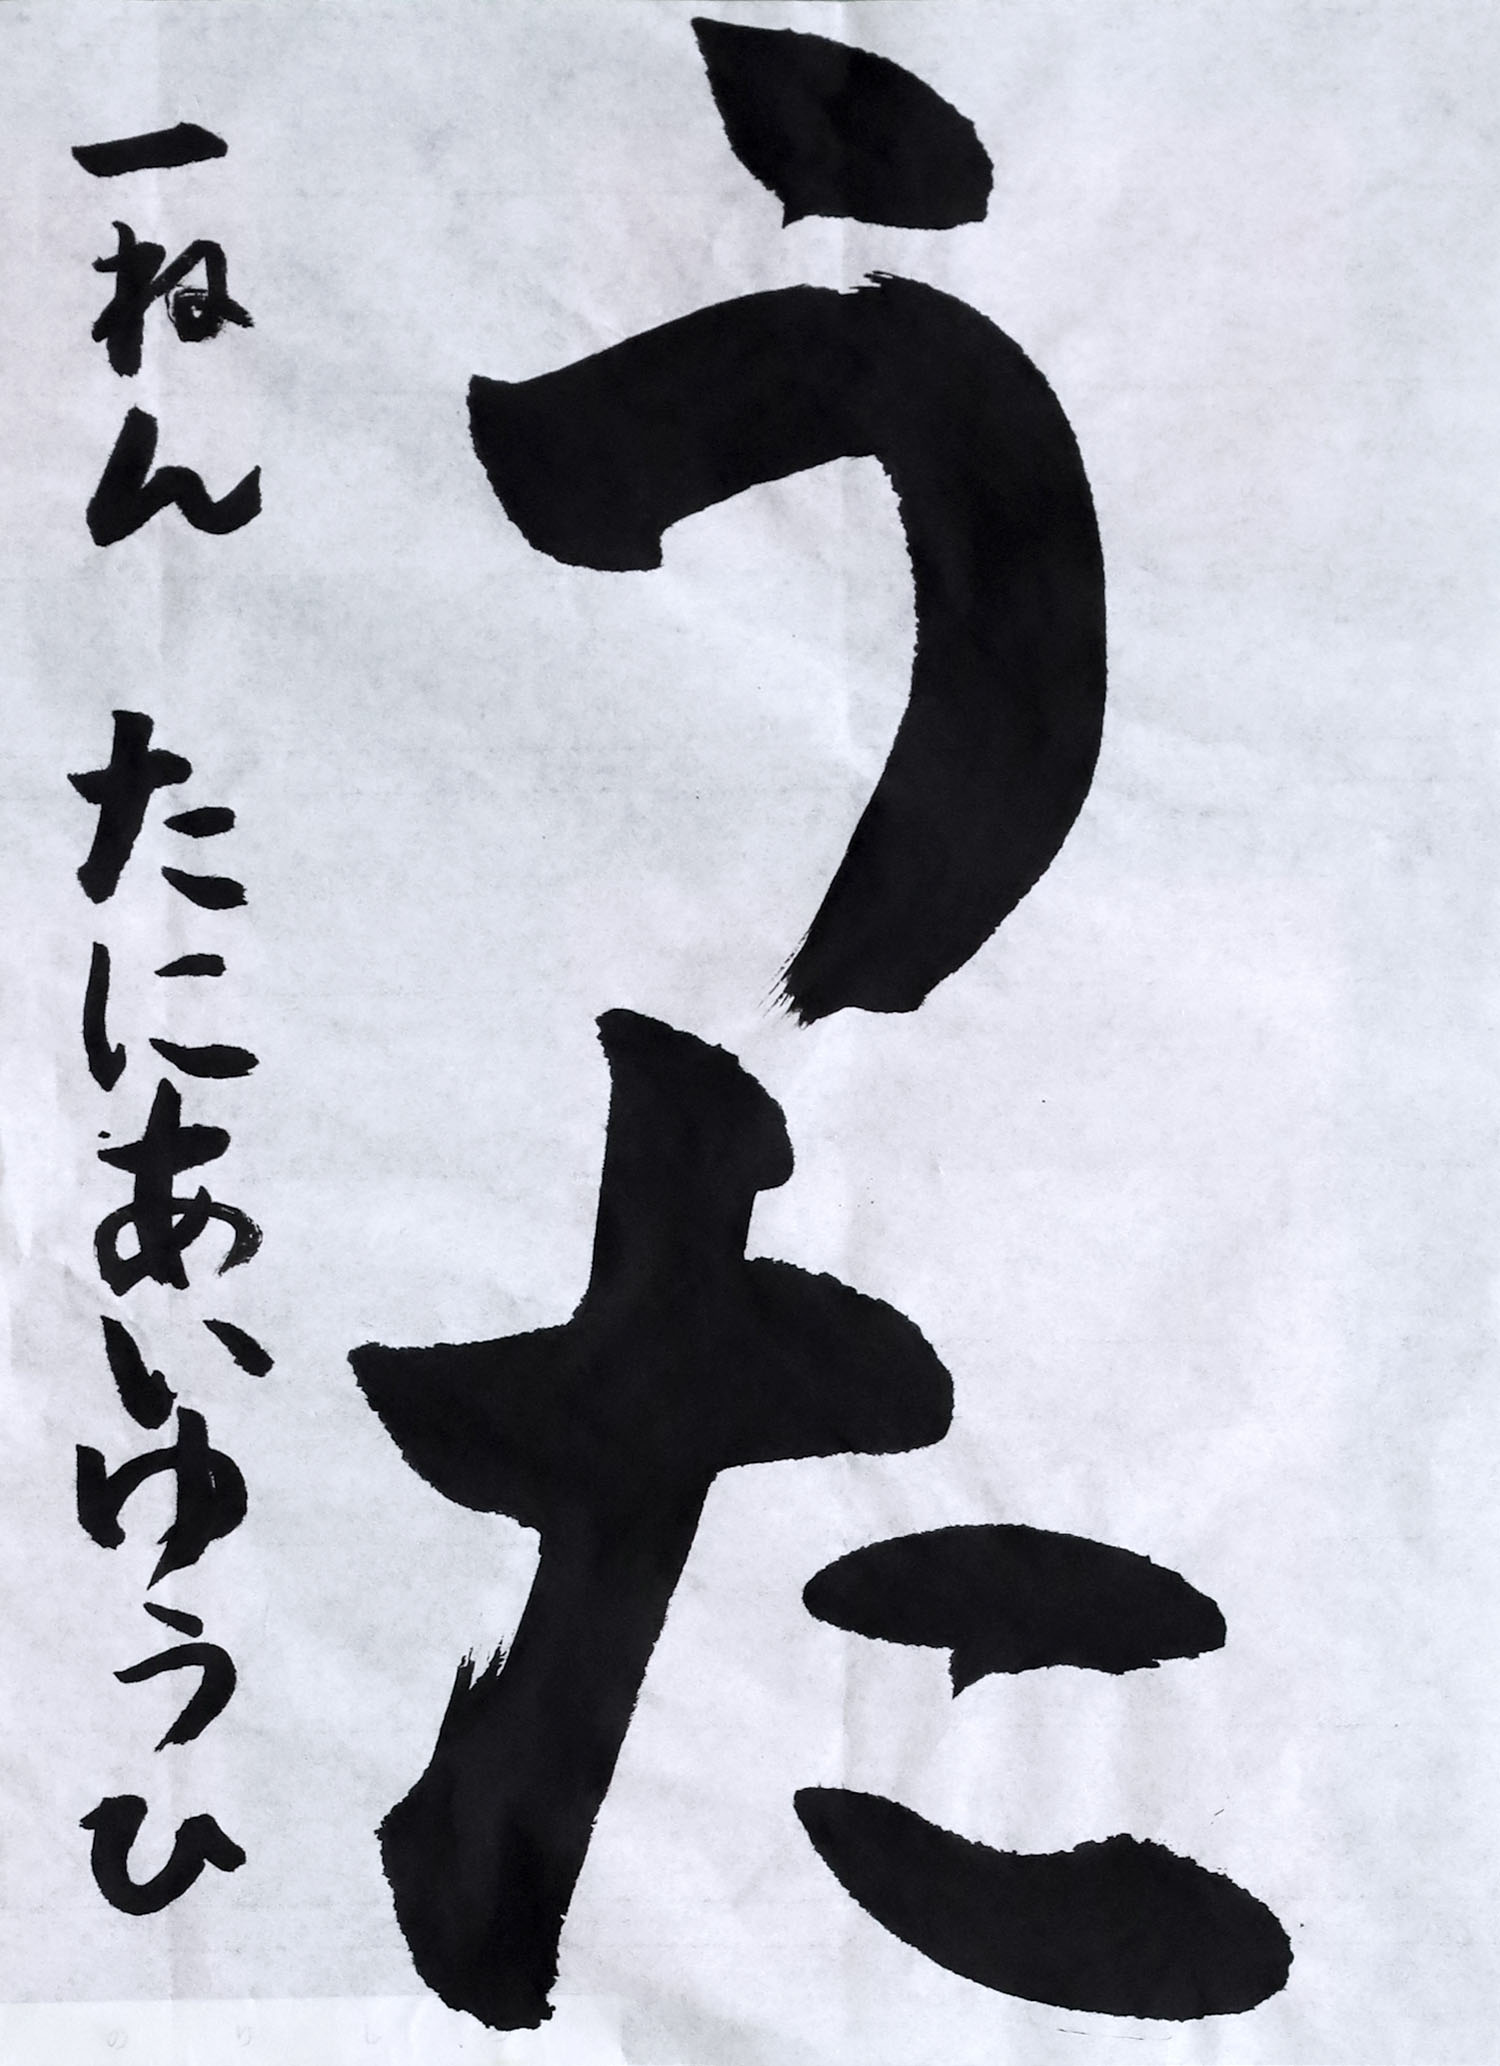 うた
一ねん たにあいゆうひ